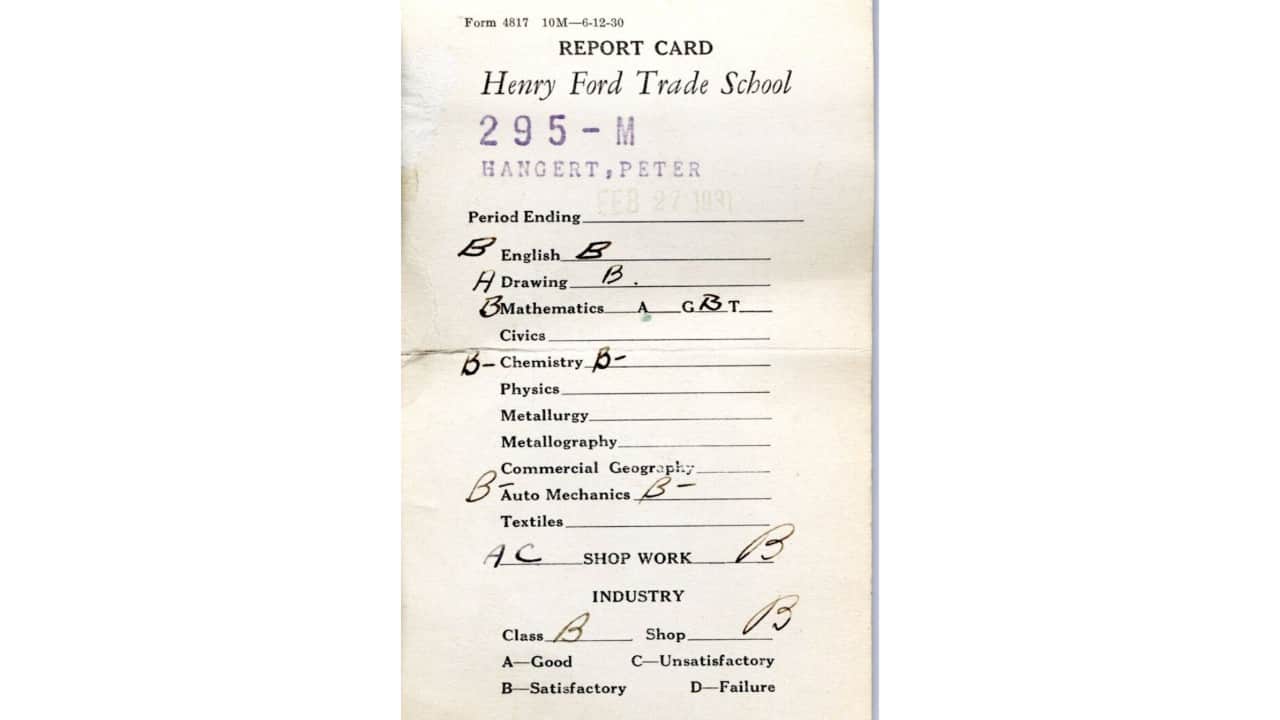 Form 4817 10M—6-12-30
REPORT CARD
Henry Ford Trade School
295-M
HANGERT, PETER
FEB 27 1931
Period Ending
B English B
A Drawing B.
B Mathematics A G B T
Civics
B- Chemistry B-
Physics
Metallurgy
Metallography
Commercial Geography
B- Auto Mechanics B-
Textiles
A C SHOP WORK B
INDUSTRY
Class B Shop B
A—Good C—Unsatisfactory
B—Satisfactory D—Failure